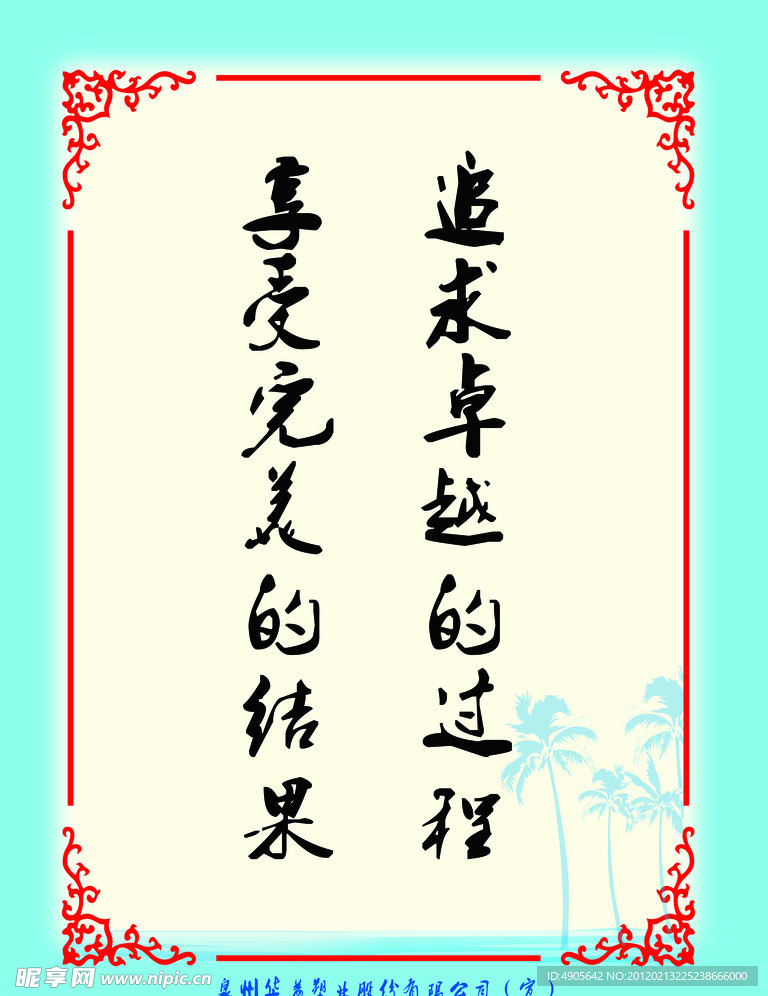 追求卓越的过程
享受完美的结果
泉州华美塑业股份有限公司（宣）
昵享网 www.nipic.cn
ID:4905642 NO:20120213225238666000